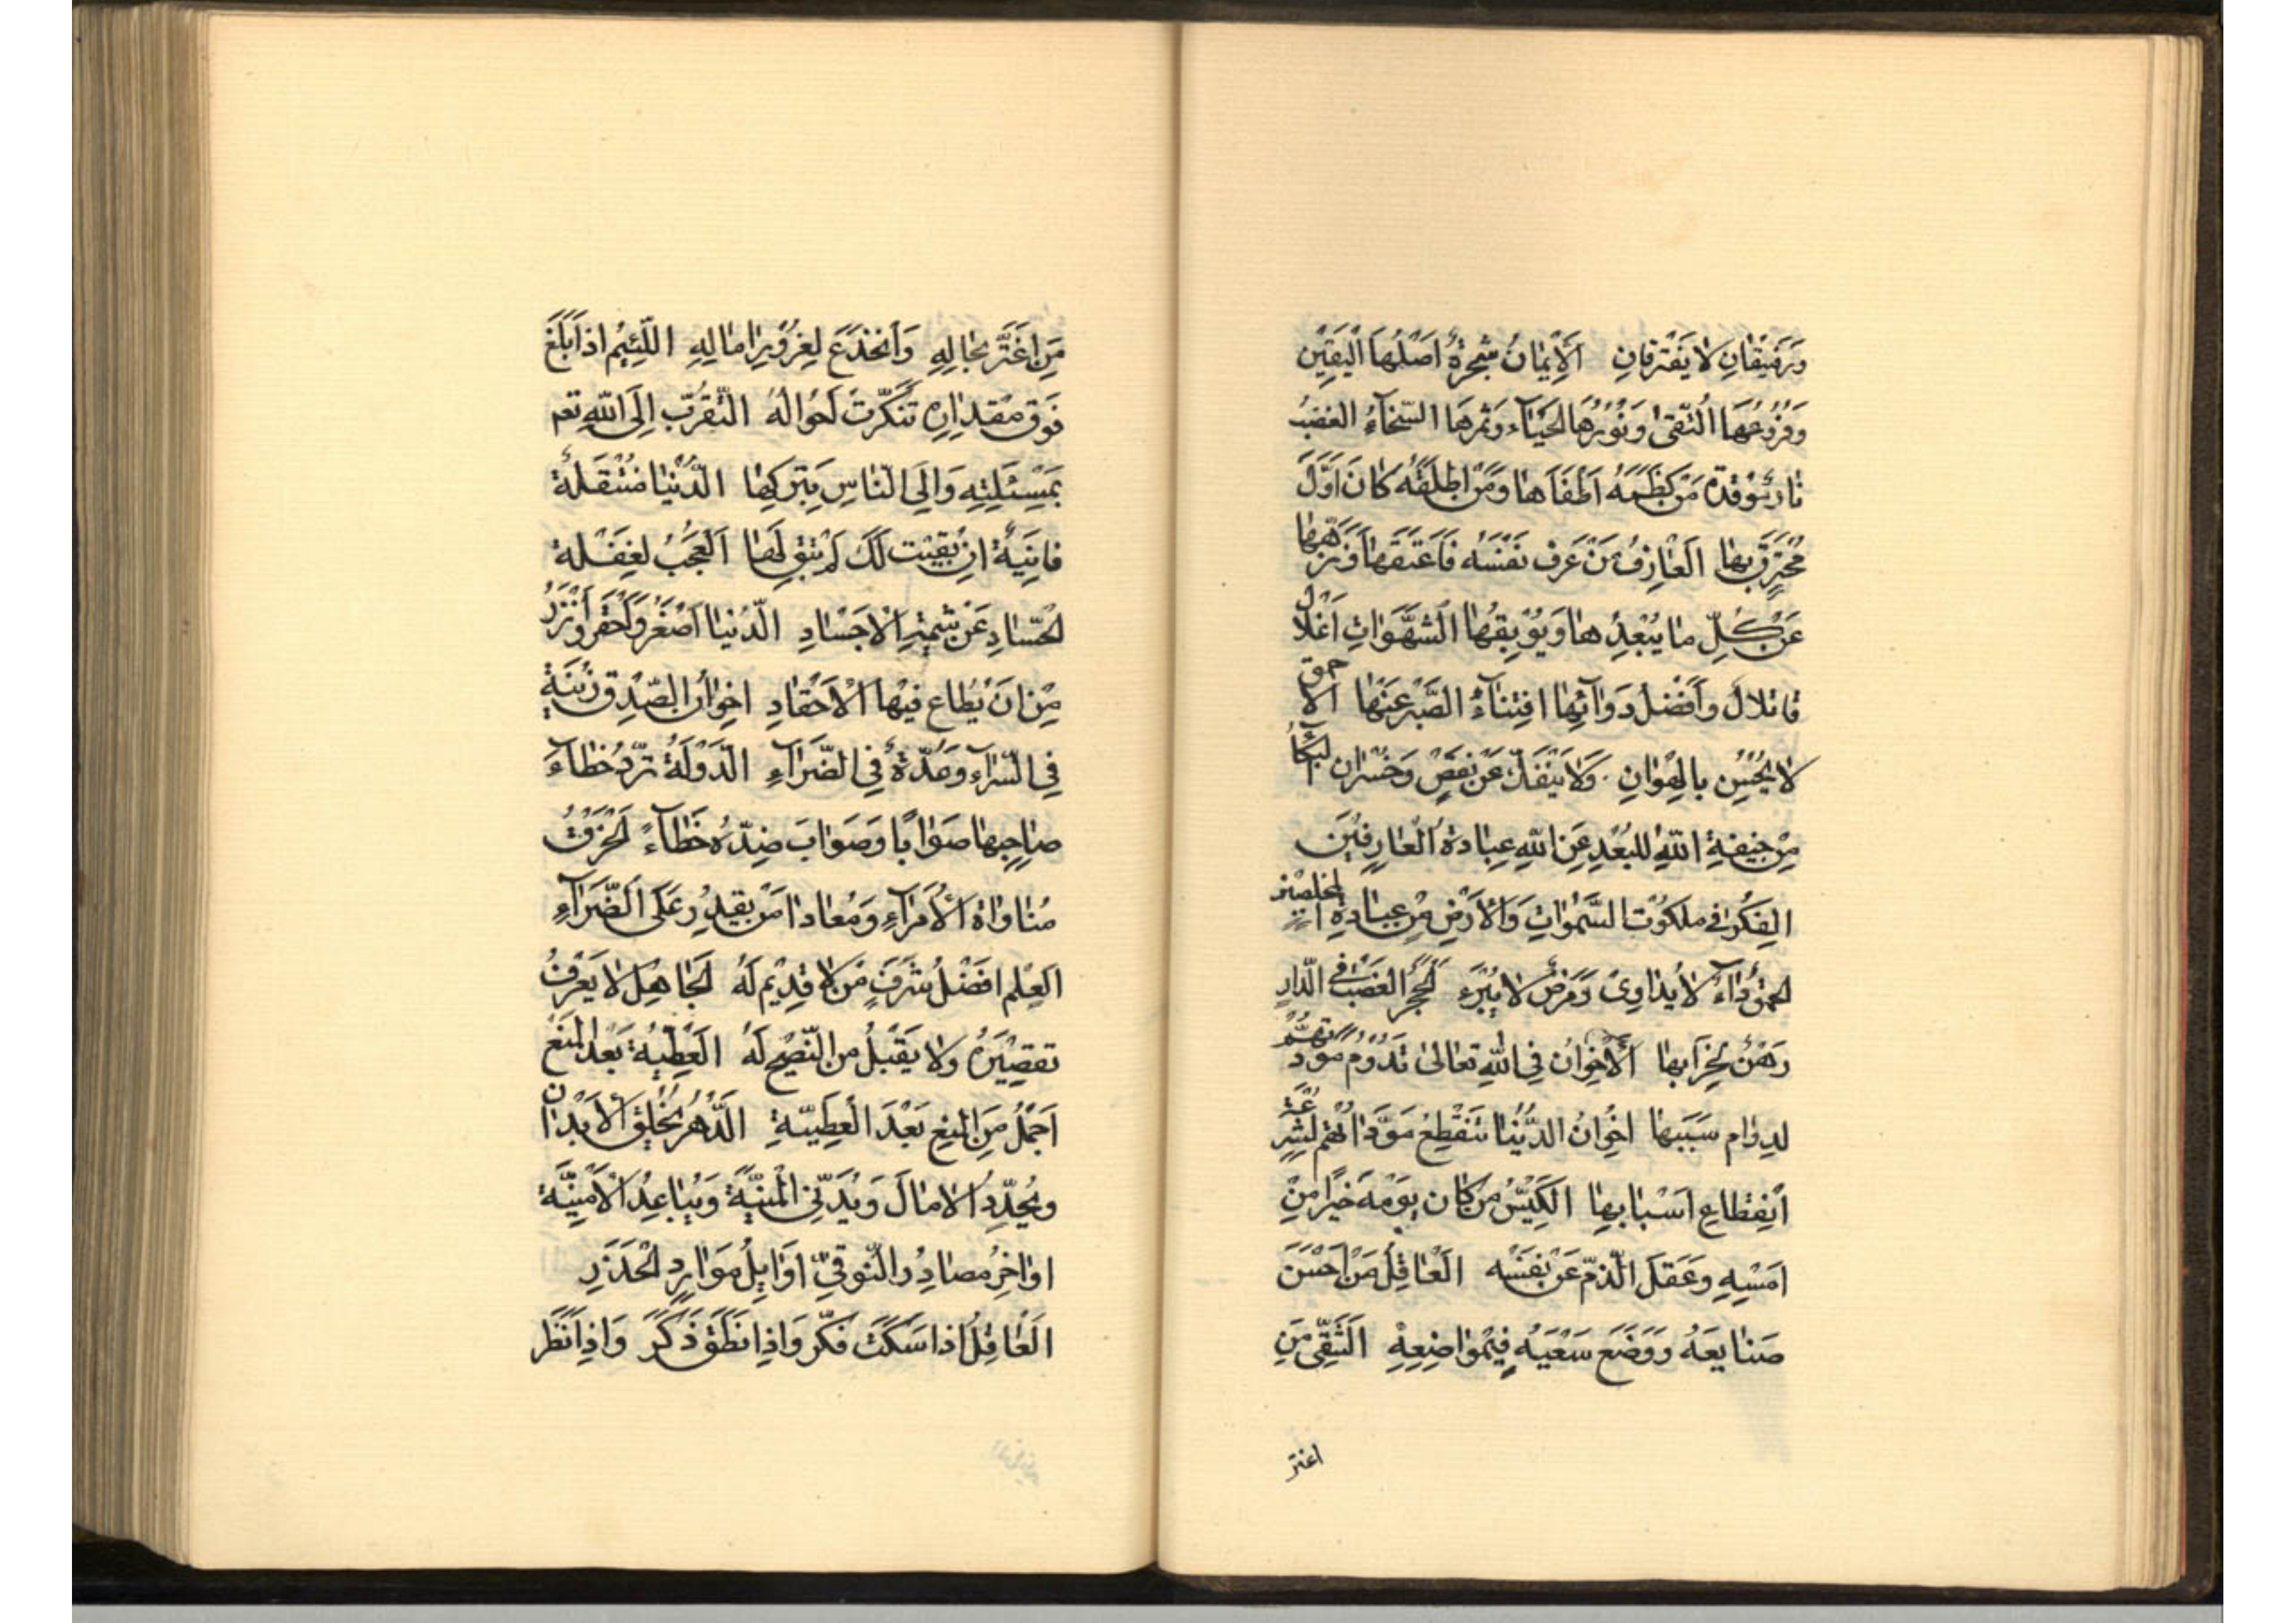 وَرَفيقانِ لا يَفْتَرِقانِ الْاِيْمانُ شَجَرَةٌ اَصْلُهَا الْيَقِيْن
وَفَرْعُهَا التُّقىٰ وَنُوْرُهَا الْحَيَآءُ وَثَمَرهَا السَّخآءُ الغضبُ
نارٌ مُوْقَدة مَنْ كَظَمَهُ اَطْفَاَها وَمَنْ اَطْلَقَهُ كانَ اَوَّلَ
مُحْتَرِقٍ بِها الْعارِفُ مَنْ عَرَفَ نَفْسَهُ فَاَعْتَقَها وَنَزَّهَها
عَنْ كُلِّ ما يُبْعِدُها وَيُوْبِقُها الشَّهَواتِ اَعْلال
قاتلال وَاَفْضَلُ دَوآئِها اقتِنآءُ الصَّبْرِ عَنْها الاحمق
لا يُحْسِنُ بالهَوانِ وَلا يَنْفَكُّ عَنْ نَقْصٍ وَخُسْرانٍ البُكآءُ
مِنْ خيفةِ اللهِ لِلبُعْدِ عَنِ اللهِ عِبادَةُ الْعارِفيْنَ
الفِكْرُ في ملكوُتِ السَّمٰواتِ وَالْاَرْضِ مِنْ عِبادَةِ المخلصين
الحمقُ دآءٌ لا يُداوىٰ وَمَرَضٌ لا يَبْرَءُ الْحَجَرُ الغَصْبُ في الدّارِ
رَهْنٌ لِخَرابِها الْاِخْوانُ فِي اللهِ تعالىٰ تَدُوْمُ مَوَدَّتهمُ
لدوامِ سَبَبِها اخْوانُ الدُّنْيا تَنْقَطِعُ مَوَدّاتهُم لِسُرْعَةِ
اِنقِطاعِ اَسْبابِها الكَيِّسُ مَنْ كانَ يَوْمُهُ خَيْرًا مِنْ
اَمْسِهِ وَعَقَلَ الذَّمَّ عَنْ نَفْسِه الْعاقِلُ مَنْ اَحْسَنَ
صَنايعَهُ وَوَضَعَ سَعْيَهُ فِيْ مَواضِعِهِ الشَّقِيُّ مَنِ
اغتر
مَنِ اغْتَرَّ بحالِهِ وَانْخَدَعَ لِغُرُوْرِ امالِهِ اللَّئِيْمُ اذا بَلَغَ
فَوْقَ مقدارِه تَنَكَّرَتْ اَحْوالُهُ التَّقَرُّب اِلَى اللهِ تع
بِمَسْئَلَتِهِ وَاِلَى النّاسِ بِتَرْكِها الدُّنْيا مُنْتَقِلَةٌ
فانِيَةٌ اِنْ بَقِيَتْ لَكَ لَمْ تَبْقَ لَها الْعَجَبُ لِغَفْلَةِ
الحُسّادِ عَنْ سَلامَةِ الْاَجْسادِ الدُّنيا اَصْغَرُ وَاَحْقَرُ وَاَنْزَرُ
مِنْ اَنْ يُطاعَ فيْها الْاَحْقادِ اخْوانُ الصِّدْقِ زيْنَةٌ
فِي السَّرّآءِ وَعُدَّةٌ فِي الضَّرّآءِ الدَّوْلَةُ تَرُدُّ خَطآءَ
صاحِبِها صَوابًا وَصَوابَ ضِدِّهِ خَطآءً الْخُرْقُ
مُناواةُ الْاُمَرآءِ وَمُعاداة مَنْ يقدِرُ عَلَى الضَّرّآءِ
العِلم افْضَلُ شَرَفِ مَنْ لا قديْمَ لَهُ الْجاهِلُ لا يَعْرِفُ
تقصِيْرَهُ ولا يَقْبَلُ مِنَ النَّصيْحِ لَهُ الْعَطِيَّةُ بَعْدَ المَنْعِ
اَجْمَلُ مِنَ المنعِ بَعْدَ الْعَطِيّةِ الدَّهْرُ يُخْلِقُ الْاَبْدانَ
ويُجَدِّدُ الْامالَ وَيُدَنِّي المَنِيَّةَ وَيُباعِدُ الْاُمْنِيَّةَ
اواخِرُ مصادِرِ التَّوَقّي اَوايِلُ مَوارِدِ الْحَذَرِ
الْعاقِلُ اذا سَكَتَ فَكَّرَ وَاِذا نَطَقَ ذَكَرَ وَاِذا نَظَرَ